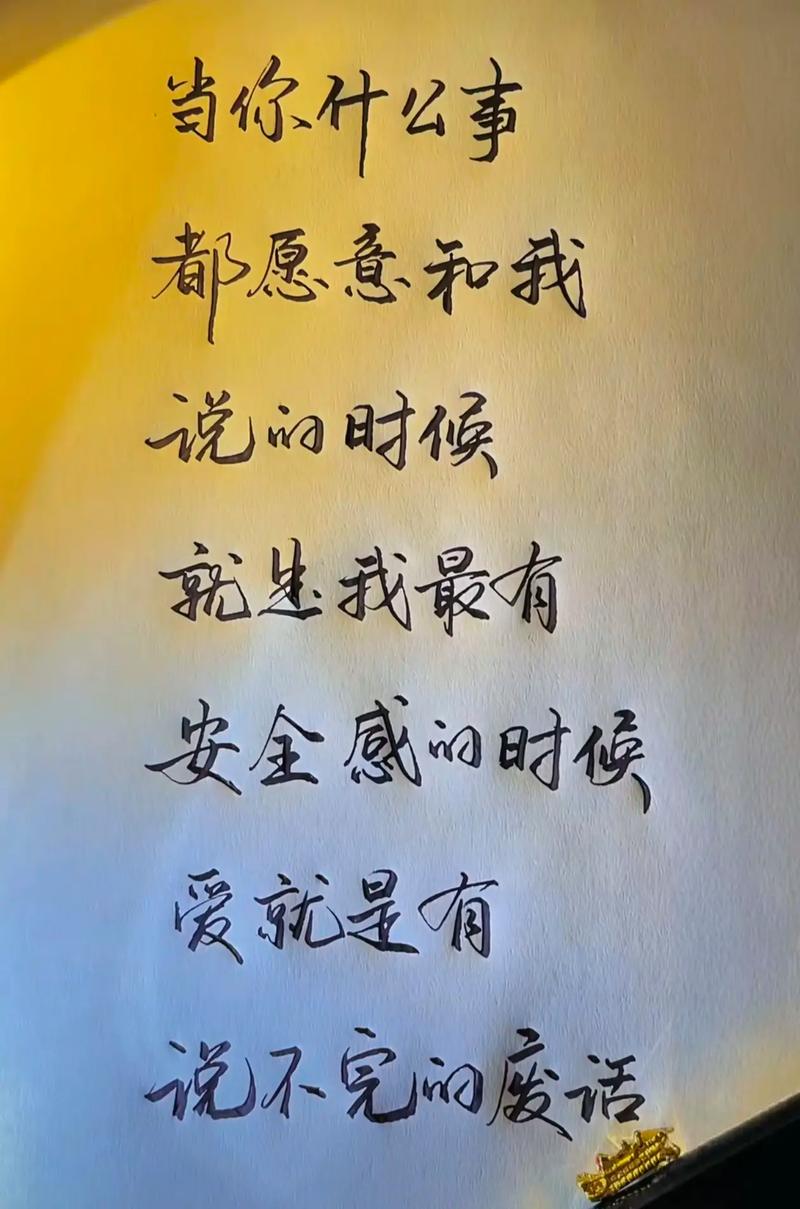 当你什么事
都愿意和我
说的时候
就是我最有
安全感的时候
爱就是有
说不完的废话